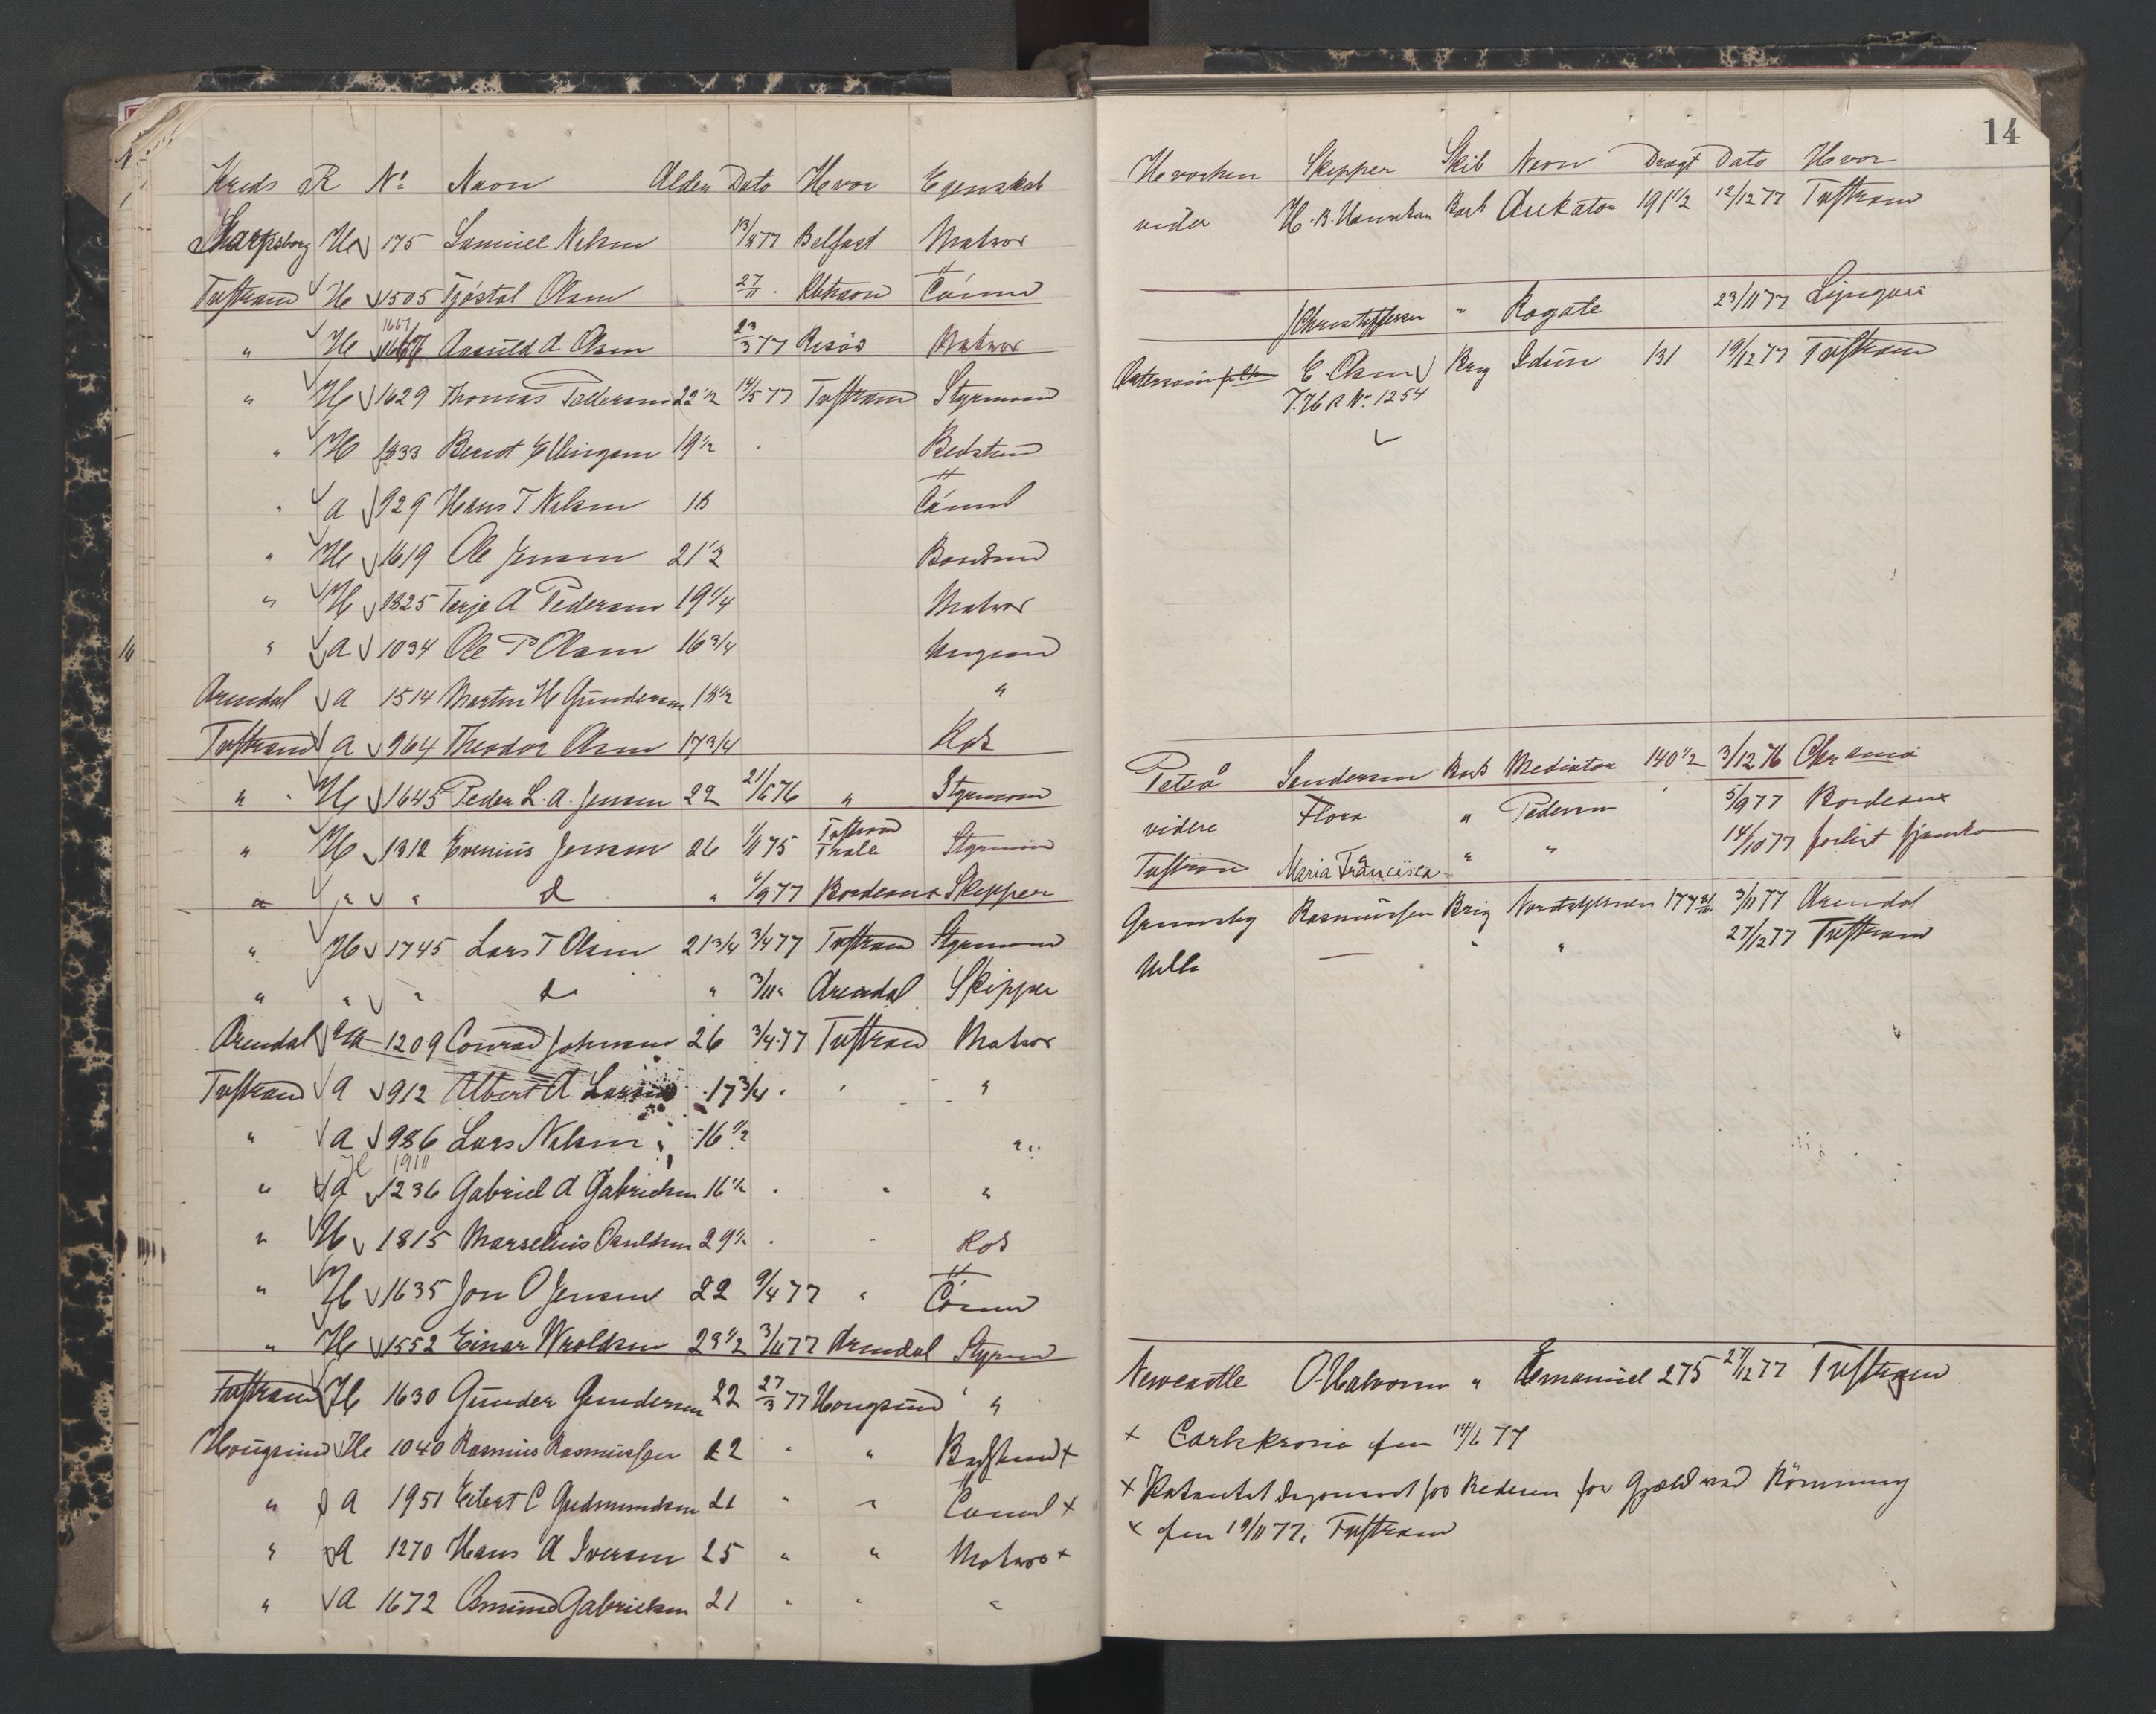 Kreds R No Navn Alder Dato Hvor Egenskab
Sarpsborg H 175 Samuel Nelsen 13/8 77 Belfast Matros
Tvestrand H 505 Tjöstol Olsen 27/11 Tömmd
" H 1667 Olsen 23/3 77 Risör Matros
" H 1629 Thomas Pedersen 22 1/2 14/5 77 Tvestrand Styrmand
" H 1833 Berent Ellingsen 19 1/2 Bedstmd
" A 929 Hans T Nelsen 18 Tömmd
" H 1619 Ole Jensen 21 1/2 Baadsmd
" H 1825 Terje A Pedersen 19 1/4 Matros
" A 1034 Ole P Olsen 16 3/4 Ungmd
Arendal A 1514 Martin H Gundersen 18 1/2 "
Tvestrand A 964 Theodor Olsen 17 3/4 Kok
" H 1645 Peder L. A. Jensen 22 21/6 76 " Styrmand
" H 1312 Evenius Jensen 26 1/11 75 Tvestrand Styrmand
" " " d " 5/9 77 Bordeaux Skipper
" H 1745 Lars T Olsen 21 3/4 3/4 77 Tvestrand Styrmand
" " " d " 3/11 " Arendal Skipper
Arendal A 1209 Conrad Johnsen 26 3/4 77 Tvestrand Matros
Tvestrand A 912 Albert A Larsen 17 3/4 "
" A 986 Lars Nelsen 16 1/2 "
H 1910
" A 1236 Gabriel A Gabrielsen 16 1/2 " "
" H 1815 Marselius Paulsen 29 1/2 Kok
" H 1635 Jon O Jensen 22 9/4 77 " Tömmd
" H 1552 Einar Wroldsen 23 1/2 3/11 77 Arendal Styrmd
Tvestrand H 1630 Gunder Gundersen 22 27/3 77 Hougsund "
Hougsund H 1040 Rasmus Rasmussen 22 " " Bedstmd +
" A 1951 Eilert C Gudmundsen 21 " " Tömmd +
" A 1270 Hans A Iversen 25 " " Matros +
" A 1672 Osmund Gabrielsen 21 " " "
14
Hvorhen Skipper Skib Navn Drægt Dato Hvor
vider H. B. Bark 191 1/2 12/12 77 Tvestrand
Christoffersen " Rogate 23/11 77
E. Olsen Brig Idun 131 19/12 77 Tvestrand
T. H R No 1254
Petså Sandersen Bark Mediator 140 1/2 3/12 76
videre Flora " Pedersen 5/9 77 Bordeaux
Tvestrand Maria Francisca " " 14/10 77 forlist
Grimsby Rasmussen Brig 177 3/11 77 Arendal
Hull — " " 27/12 77 Tvestrand
Newcastle O. Halvorsen " Emanuel 275 27/12 77 Tvestrand
+ Carlskrona den 14/6 77
+ for Rederen for Gjæld ved Römning
+ den 19/11 77. Tvestrand